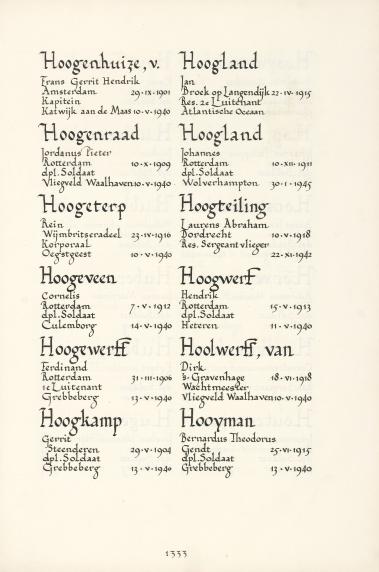 Hoogenhuize, v.
Frans Gerrit Hendrik
Amsterdam 29·IX·1901
Kapitein
Katwijk aan de Maas 10·V·1940
Hoogenraad
Jordanus Pieter
Rotterdam 10·X·1909
dpl. Soldaat
Vliegveld Waalhaven 10·V·1940
Hoogeterp
Rein
Wijmbritseradeel 23·IV·1916
Korporaal
Oegstgeest 10·V·1940
Hoogeveen
Cornelis
Rotterdam 7·V·1912
dpl. Soldaat
Culemborg 14·V·1940
Hoogewerff
Ferdinand
Rotterdam 31·III·1906
1e Luitenant
Grebbeberg 13·V·1940
Hoogkamp
Gerrit
Steenderen 29·V·1904
dpl. Soldaat
Grebbeberg 13·V·1940
Hoogland
Jan
Broek op Langendijk 27·IV·1915
Res. 2e Luitenant
Atlantische Oceaan
Hoogland
Johannes
Rotterdam 10·XII·1911
dpl. Soldaat
Wolverhampton 30·I·1945
Hoogteiling
Laurens Abraham
Dordrecht 10·V·1918
Res. Sergeant vlieger
22·XI·1942
Hoogwerf
Hendrik
Rotterdam 15·V·1913
dpl. Soldaat
Heteren 11·V·1940
Hoolwerff, van
Dirk
's-Gravenhage 18·VI·1918
Wachtmeester
Vliegveld Waalhaven 10·V·1940
Hooyman
Bernardus Theodorus
Gendt 25·VI·1915
dpl. Soldaat
Grebbeberg 13·V·1940
1333